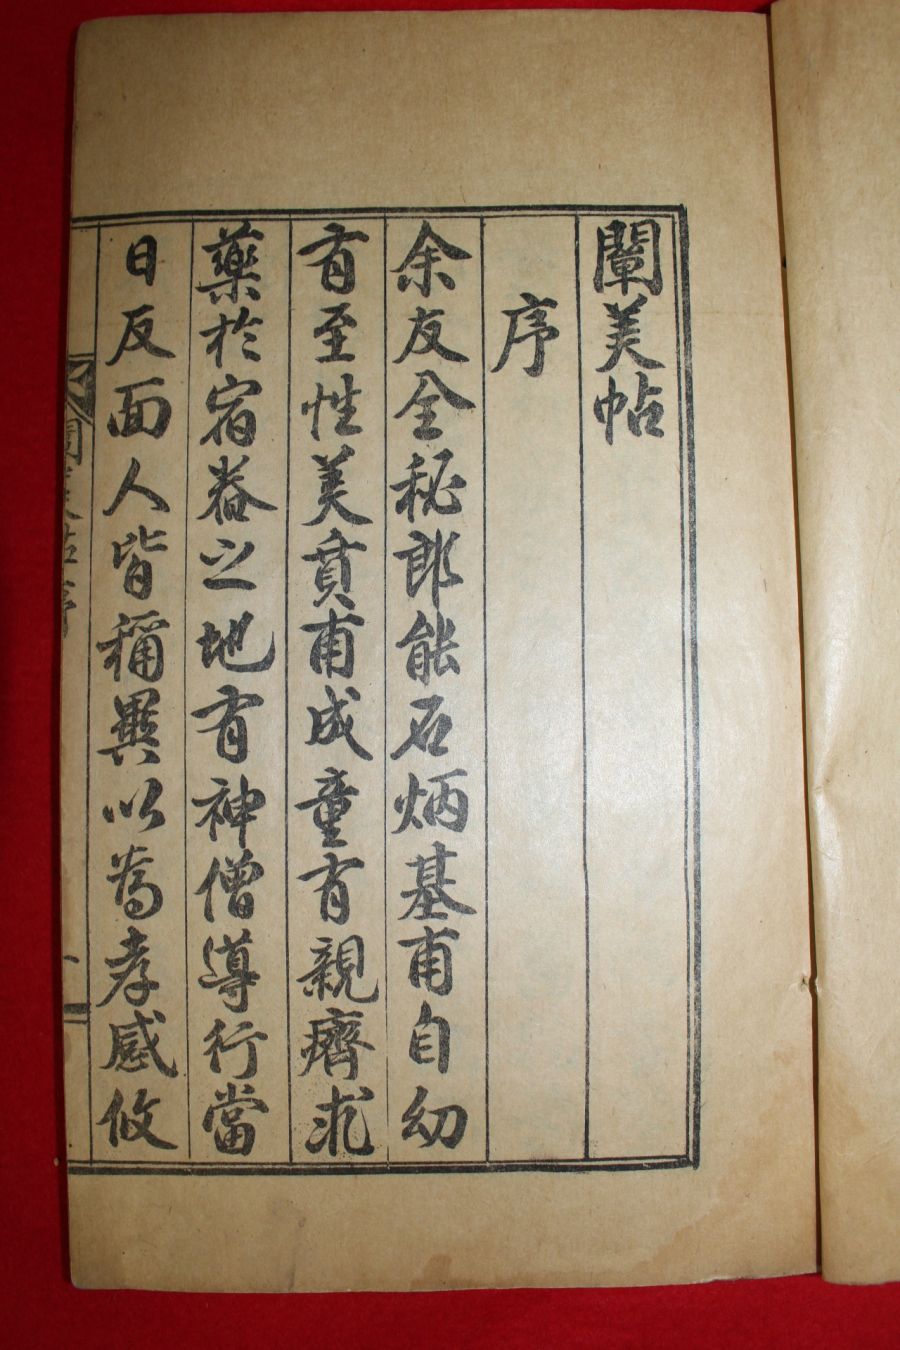 闡美帖
序
余友全秘郎能石炳基甫自幼
有至性美賁甫成童有親癠求
藥於宿舂之地有神僧導行當
日反面人皆稱異以爲孝感攸